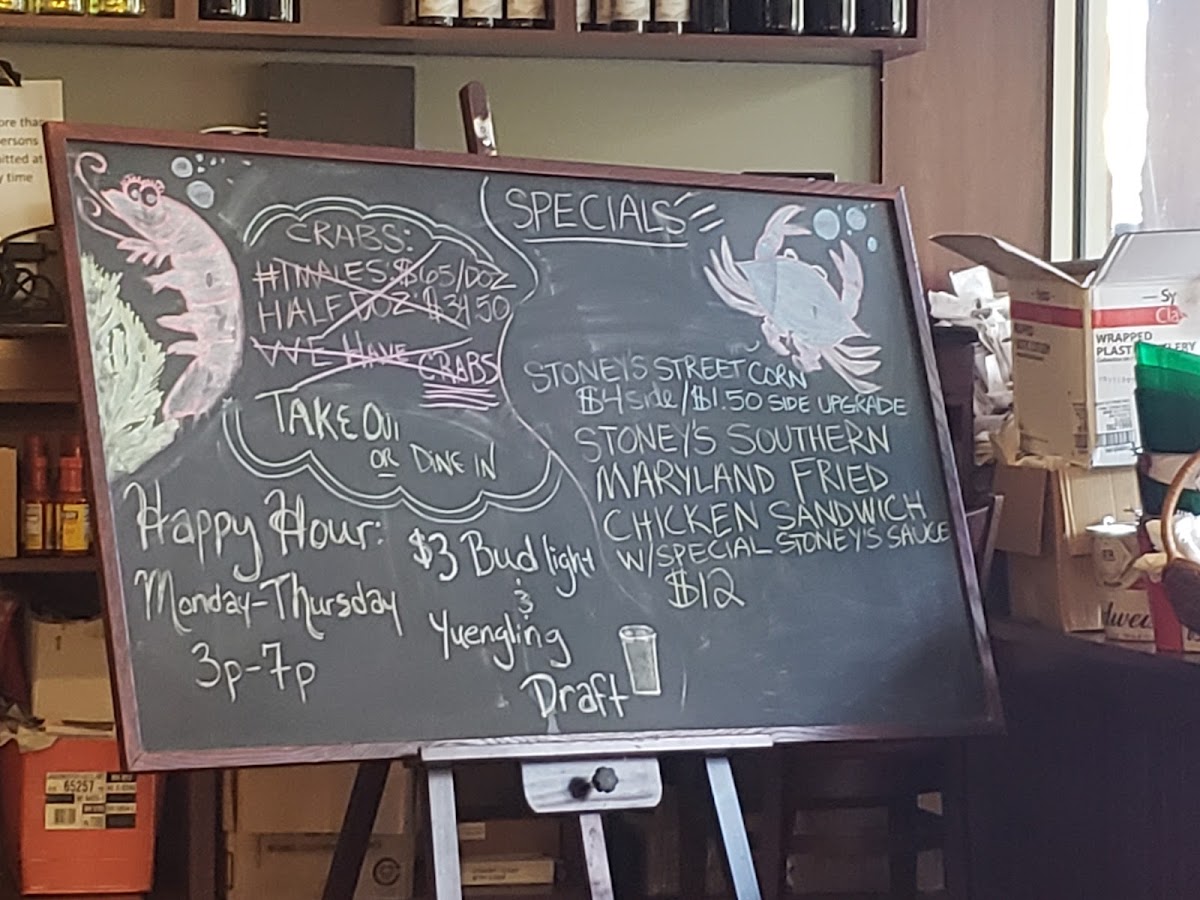 ore than
ersons
itted at
y time
CRABS:
#1 MALES: $65/DOZ
HALF DOZ $34.50
WE HAVE CRABS
TAKE OUT
OR DINE IN
Happy Hour:
Monday-Thursday
3p-7p
$3 Bud light
&
Yuengling
Draft
SPECIALS
STONEY'S STREET CORN
$4 side/$1.50 SIDE UPGRADE
STONEY'S SOUTHERN
MARYLAND FRIED
CHICKEN SANDWICH
W/SPECIAL STONEY'S SAUCE
$12
Sy
Cla
WRAPPED
PLAST
LERY
65257